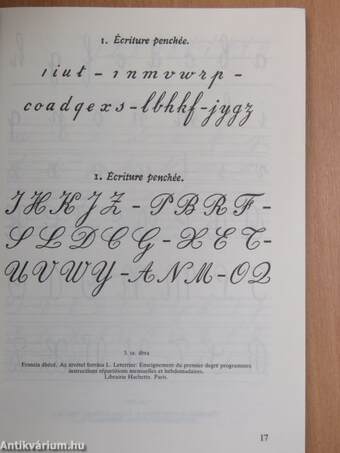 1. Écriture penchée.
ı i u t - ı n m v w r p -
c o a d q e x s - l b h k f - j y g z
1. Écriture penchée.
I H K J Z - P B R F -
S L D C G - X E T -
U V W Y - A N M - O Q
3. sz. ábra
Francia ábécé. Az átvétel forrása L. Leterrier: Enseignement du premier degré programmes
instructions répartitions mensuelles et hebdomadaires.
Librairie Hachette. Paris.
17
Antikvárium.hu